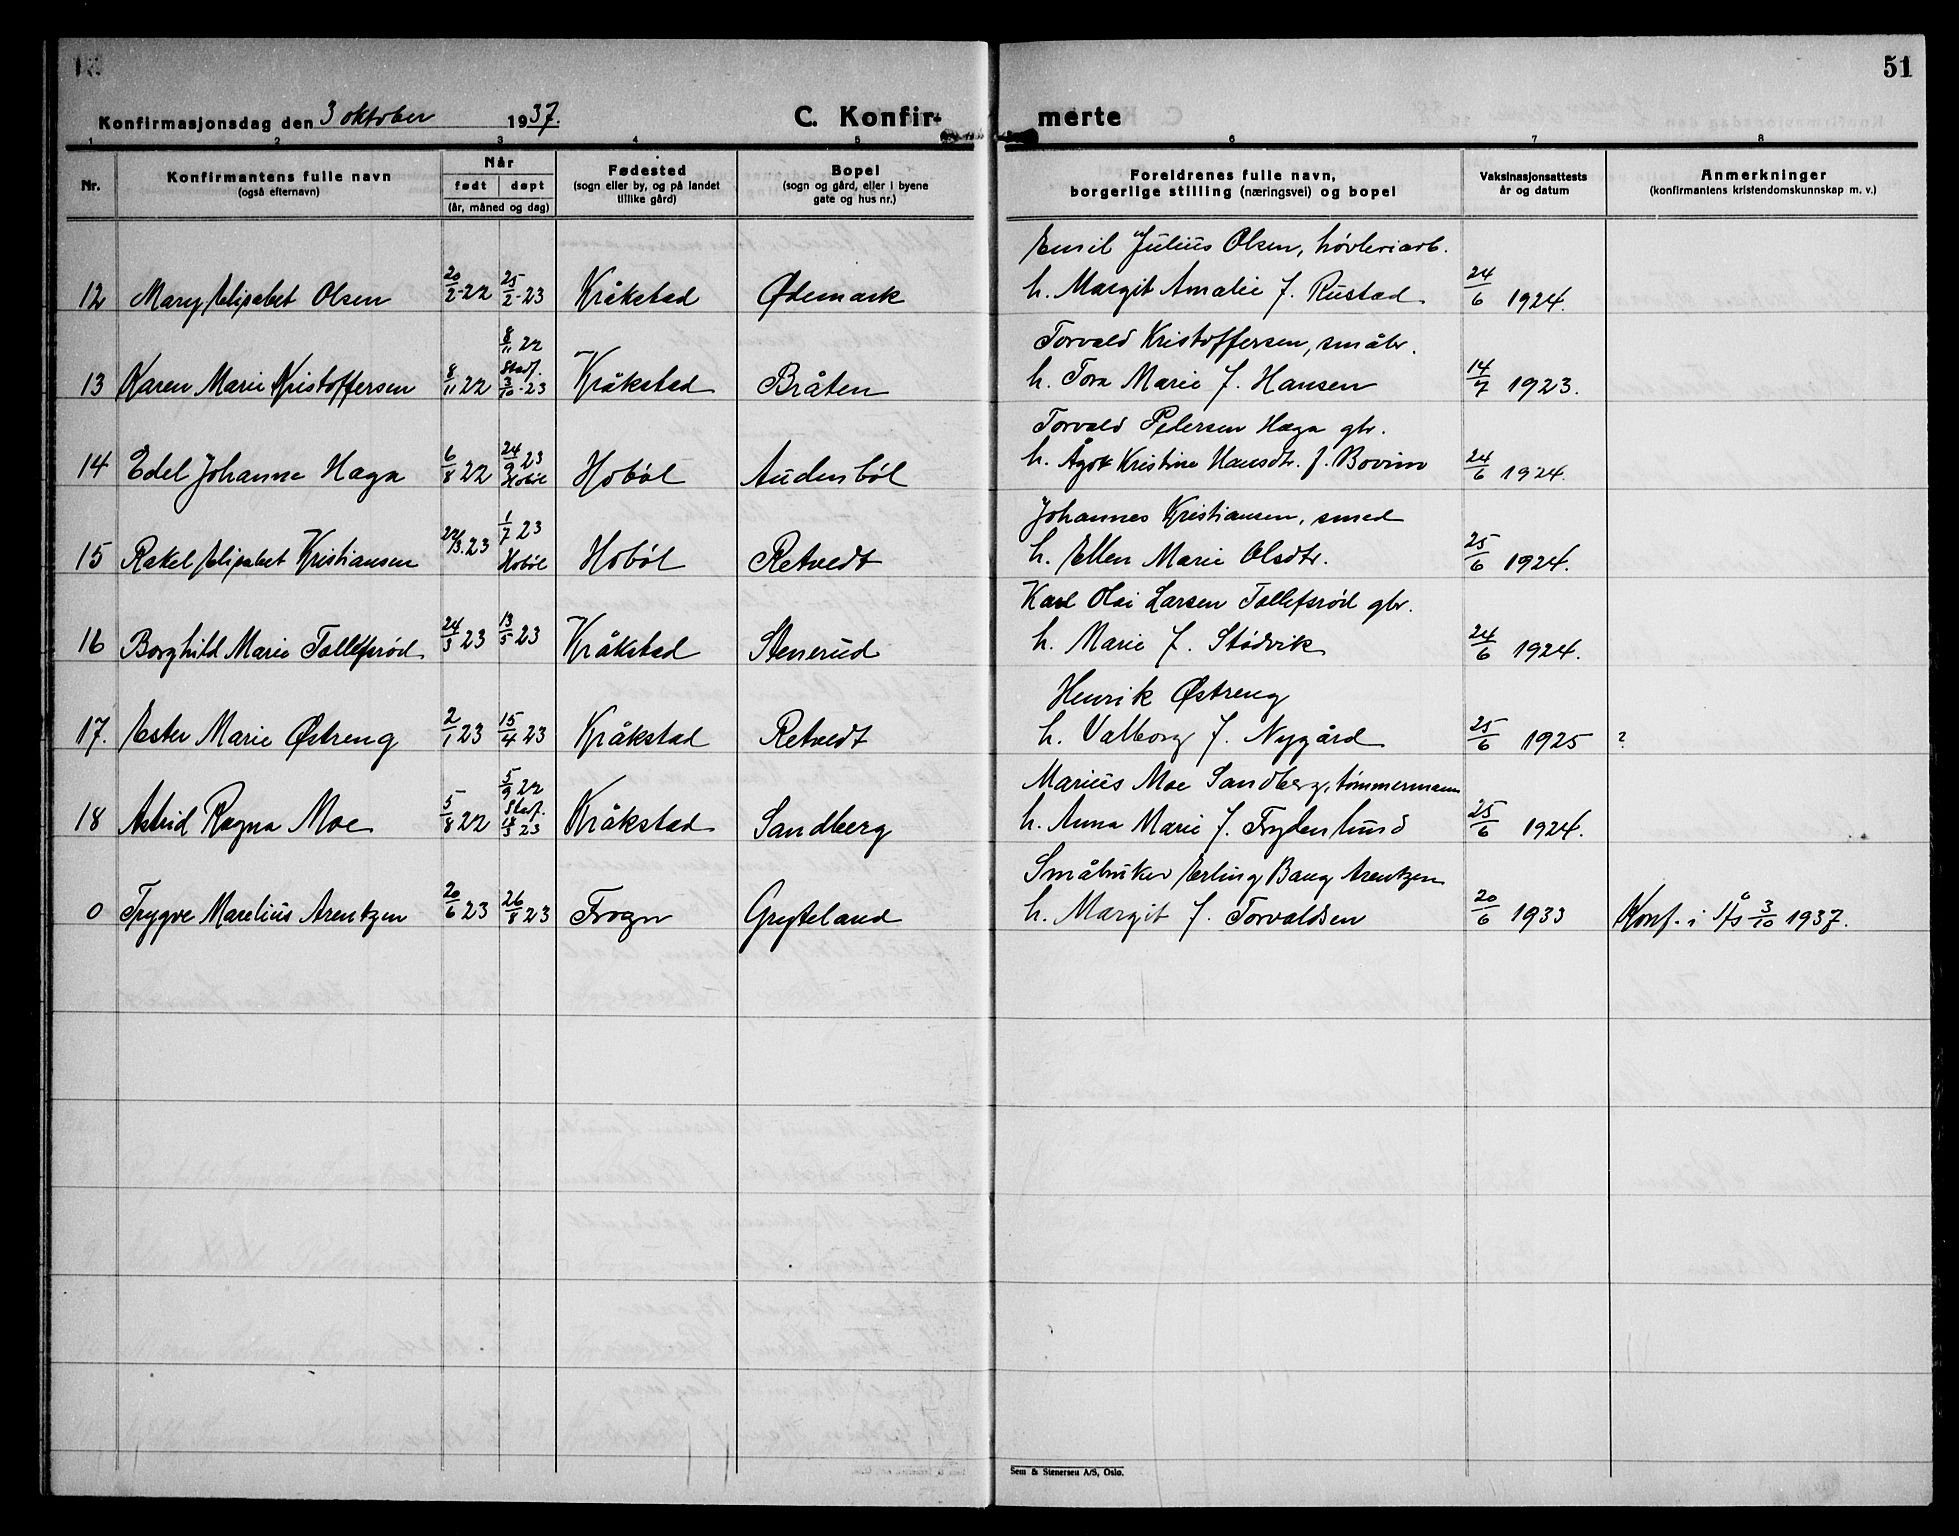 51
Konfirmasjonsdag den 3 oktober 1937.
C. Konfir-
merte
1 2 3 4 5 6 7 8
Nr.
Konfirmantens fulle navn
(også efternavn)
Når
født døpt
(år, måned og dag)
Fødested
(sogn eller by, og på landet
tillike gård)
Bopel
(sogn og gård, eller i byene
gate og hus nr.)
Foreldrenes fulle navn,
borgerlige stilling (næringsvei) og bopel
Vaksinasjonsattests
år og datum
Anmerkninger
(konfirmantens kristendomskunnskap m. v.)
Emil Julius Olsen, høvleriarb.
12 Mary Elisabet Olsen 20/2-22 25/2-23 Kråkstad Ødemark h. Margit Amalie f. Rustad 24/6 1924.
8/11 22 Torvald Kristoffersen, småbr.
Stadf.
13 Karen Marie Kristoffersen 8/11 22 3/10-23 Kråkstad Bråten h. Tora Marie f. Hansen 14/7 1923.
Torvald Pedersen Haga gbr.
14 Edel Johanne Haga 6/8 22 24/9 23 Hobøl Audensbøl h. Ågot Kristine Hansdtr. f. Bovim 24/6 1924.
Hobøl
1/7 23 Johannes Kristiansen, smed
15 Rakel Elisabet Kristiansen 22/3.23 Hobøl Hobøl Retvedt h. Ellen Marie Olsdtr. 25/6 1924.
Karl Olai Larsen Tollefsrød gbr.
16 Borghild Marie Tollefsrød 24/3 23 13/5 23 Kråkstad Stenerud h. Marie f. Stødvik 24/6 1924.
Henrik Østreng
17. Ester Marie Østreng 2/1 23 15/4 23 Kråkstad Retvedt h. Valborg f. Nygård 25/6 1925 ?
5/9 22 Marius Moe Sandberg, tømmermann
Stadf.
18 Astrid Ragna Moe 5/8 22 18/3 23 Kråkstad Sandberg h. Anna Marie f. Frydenlund 25/6 1924.
Småbruker Erling Baug Arentzen
0 Trygve Marelius Arentzen 20/6 23 26/8 23 Frogn Gryteland h. Margit f. Torvaldsen 20/6 1933 Konf. i Ås 3/10 1937.
Sem & Stenersen A/S, Oslo.